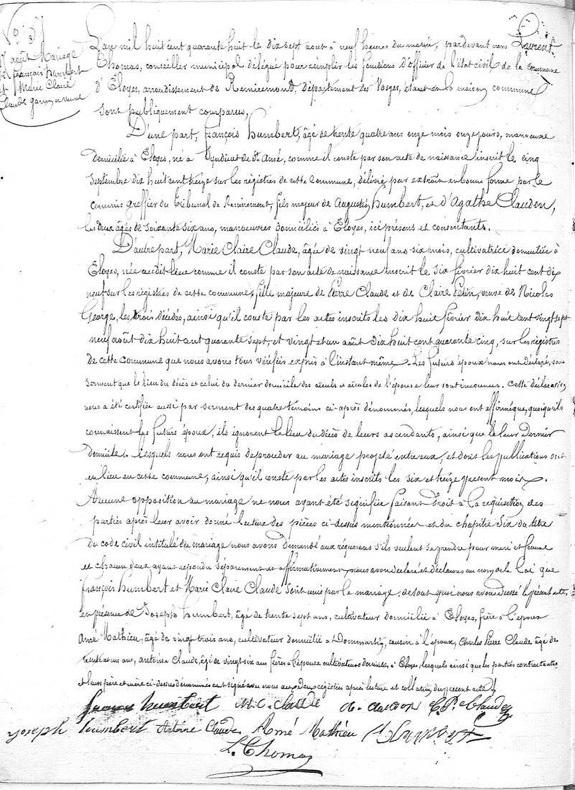 No. 
17 août Mariage
de françois humbert
et Marie Claire
Claude
L'an mil huit cent quarante huit le dix sept août à neuf heures du matin, pardevant nous Laurent
Thomas, conseiller municipal délégué pour remplir les fonctions d'Officier de l'état civil de la commune
d'Eloyes, arrondissement de Remiremont, département des Vosges, étant en la maison commune
sont publiquement comparus,
D'une part, françois humbert, âgé de trente quatre ans onze mois onze jours, manœuvre
domicilié à Eloyes, né à Syndicat de St Amé, comme il conste par son acte de naissance inscrit le cinq
septembre dix huit cent treize sur les régistres de cette commune, délivré par extrait en bonne forme par le
commis greffier du tribunal de Remiremont, fils majeur de Augustin humbert, et d'Agathe Claudon,
les deux âgés de soixante six ans, manœuvres domiciliés à Eloyes, ici présents et consentants.
D'autre part, Marie Claire Claude, âgée de vingt neuf ans six mois, cultivatrice domiciliée à
Eloyes, née audit lieu comme il conste par son acte de naissance inscrit le six février dix huit cent dix
neuf sur les régistres de cette commune, fille majeure de Pierre Claude et de Claire veuve de Nicolas
George, les trois décédés, ainsi qu'il conste par les actes inscrits les dix huit février dix huit cent vingt sept
neuf août dix huit cent quarante sept, et vingt et un août dix huit cent quarante cinq, sur les régistres
de cette commune que nous avons tous vérifiés exprès à l'instant même. Les futurs époux nous ont déclaré, sous
serment que le lieu du décès et celui du dernier domicile des aïeuls et aïeules de l'épouse leur sont inconnus. Cette déclaration
nous a été certifiée aussi par serment des quatre témoins ci-après dénommés, lesquels nous ont affirmé que, quoiqu'ils
connaissent les futurs époux, ils ignorent le lieu du décès de leurs ascendants, ainsi que de leur dernier
domicile. Lesquels nous ont requis de procéder au mariage projeté entre eux, et dont les publications ont
eu lieu en cette commune, ainsi qu'il conste par les actes inscrits les six et treize présent mois.
Aucune opposition au mariage ne nous ayant été signifiée faisant droit à la requisition des
parties après leur avoir donné lecture des pièces ci-dessus mentionnées et du chapitre six du titre
du code civil intitulé du mariage nous avons demandé aux réquérans s'ils veulent se prendre pour mari et femme
et chacun d'eux ayant répondu séparément et affirmativement, nous avons déclaré et déclarons au nom de la loi que
françois humbert et Marie Claire Claude sont unis par le mariage, de tout quoi nous avons dressé le présent acte,
en présence de Joseph humbert, âgé de trente sept ans, cultivateur domicilié à Eloyes, frère à l'époux
Amé Mathieu, âgé de vingt trois ans, cultivateur domicilié à Dommartin, cousin à l'époux, Charles Pierre Claude âgé de
ans, Antoine Claude, âgé de vingt six ans frères à l'épouse cultivateurs domiciliés à Eloyes, lesquels ainsi que les parties contractantes
et les père et mère ci-dessus dénommés ont signé avec nous aux deux régistres après lecture et collation du présent acte.
françois humbert M. C. Claude Ch. P. Claude
Joseph humbert Antoine Claude Amé Mathieu
L. Thomas